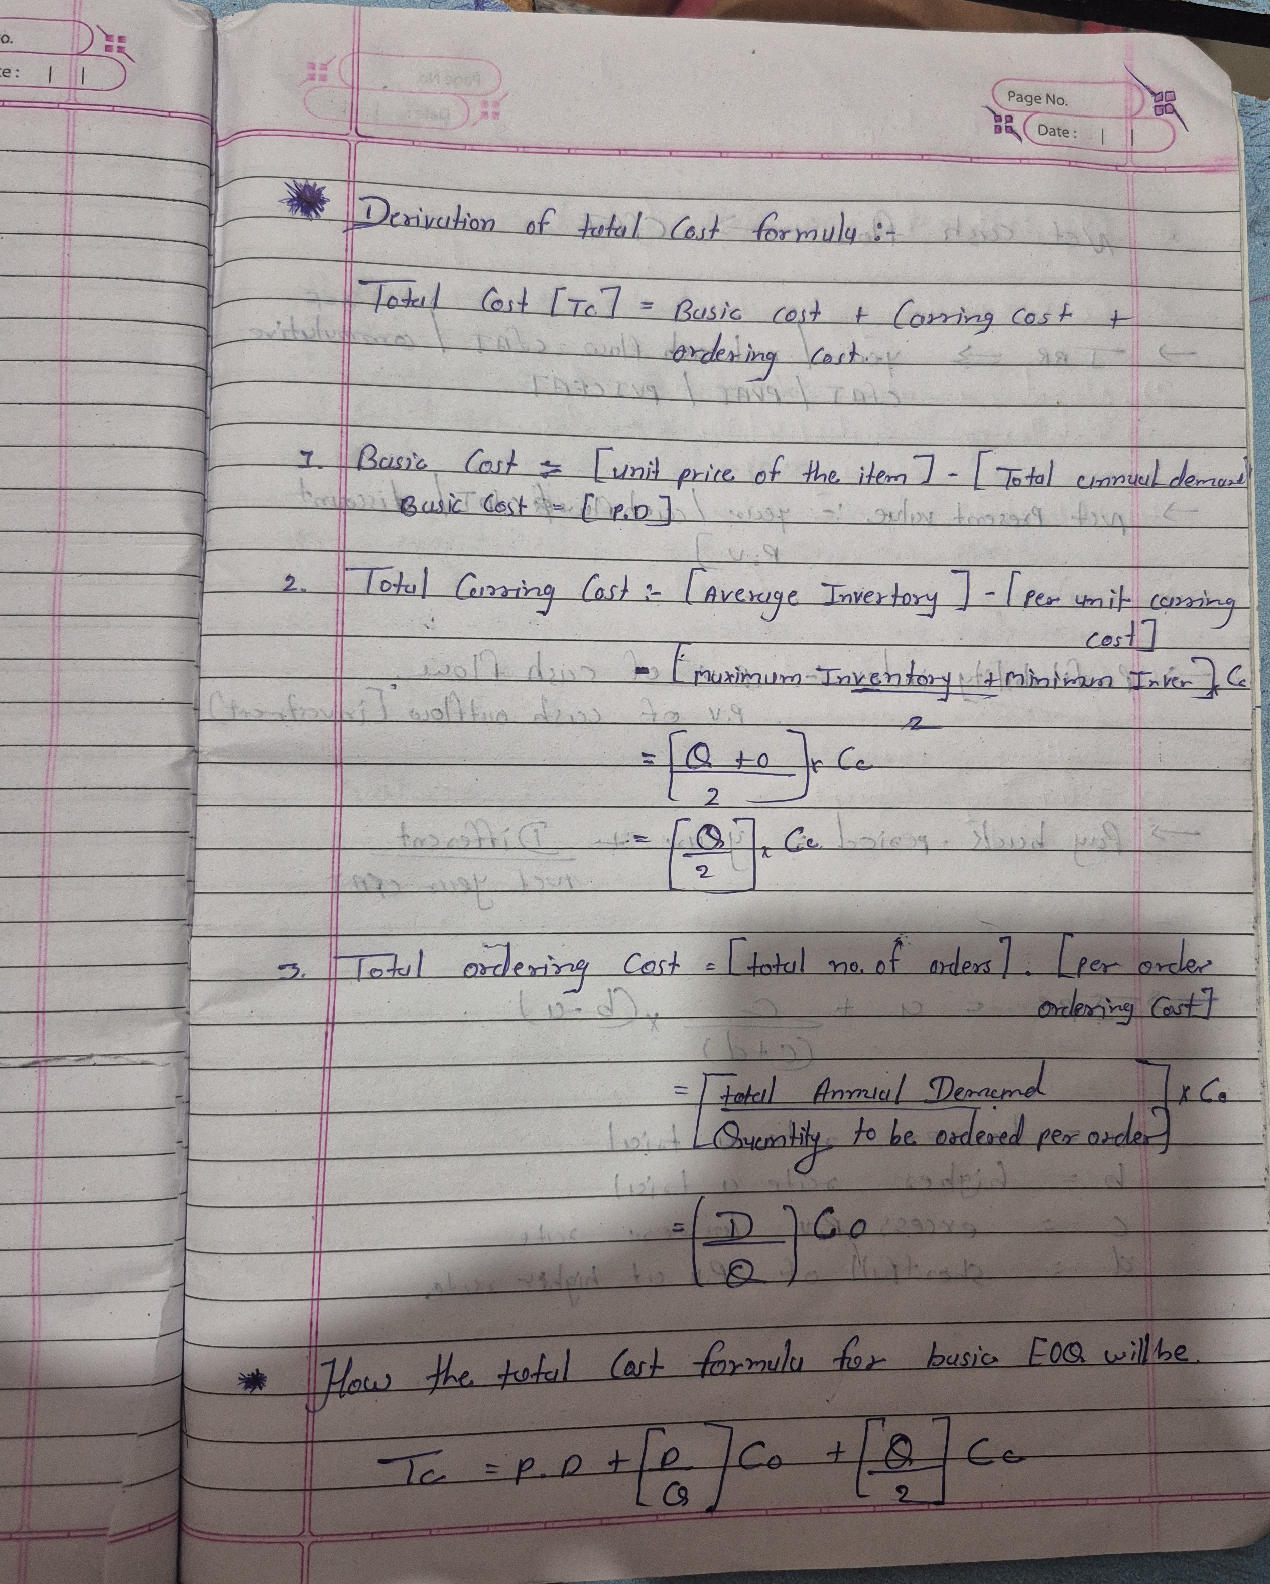 o.
te: | |
Page No.
Date: | |
Derivation of total Cost formula :-
Total Cost [Tc] = Basic cost + Carring cost +
ordering cost.
1. Basic Cost = [unit price of the item] - [Total annual demand]
Basic Cost = [P.D]
2. Total Carring Cost :- [Average Invertory] - [per unit carring
cost]
= [maximum Inventory + minimum Inven] x Cc
2
= [Q + 0] x Cc
2
= [Q] x Cc
2
3. Total ordering Cost = [total no. of orders]. [per order
ordering Cost]
= [total Annual Demand] x Co
[Quantity to be ordered per order]
= [D] CO
Q
How the total Cost formula for basic EOQ will be.
Tc = P.D + [D] Co + [Q] Cc
Q 2